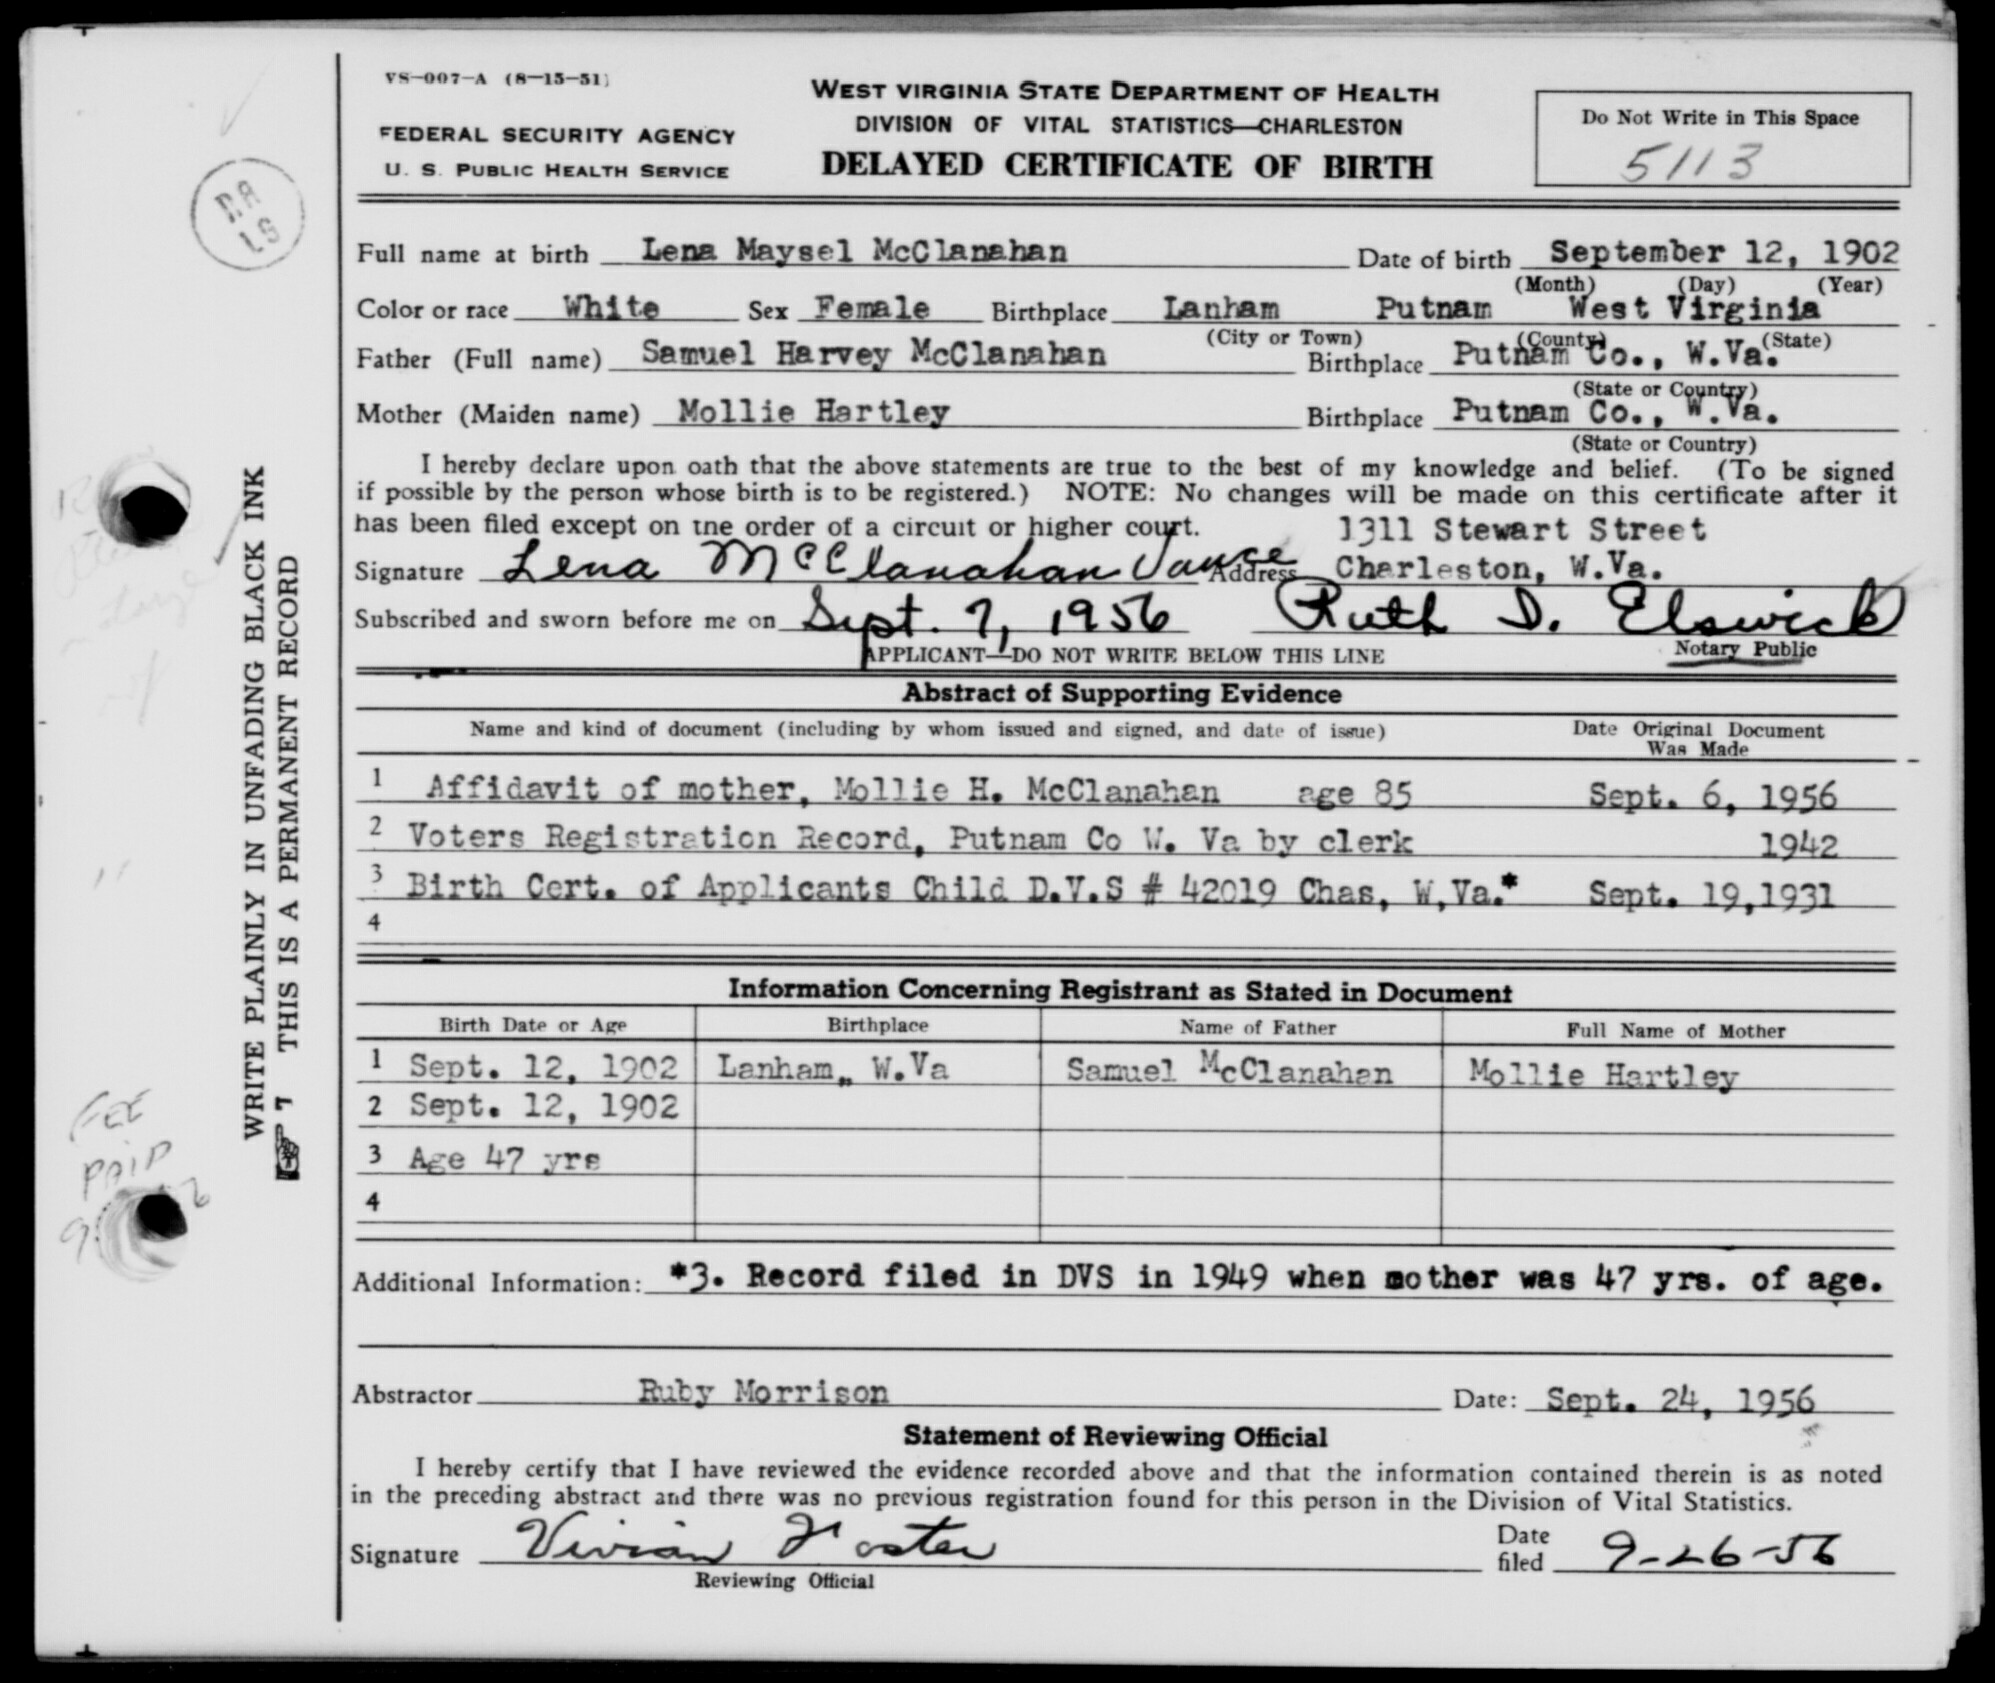 VS-007-A (8-15-51)
FEDERAL SECURITY AGENCY
U. S. PUBLIC HEALTH SERVICE
WEST VIRGINIA STATE DEPARTMENT OF HEALTH
DIVISION OF VITAL STATISTICS—CHARLESTON
DELAYED CERTIFICATE OF BIRTH
Do Not Write in This Space
5113
Full name at birth Lena Maysel McClanahan Date of birth September 12, 1902
(Month) (Day) (Year)
Color or race White Sex Female Birthplace Lanham Putnam West Virginia
(City or Town) (County) (State)
Father (Full name) Samuel Harvey McClanahan Birthplace Putnam Co., W.Va.
(State or Country)
Mother (Maiden name) Mollie Hartley Birthplace Putnam Co., W.Va.
(State or Country)
I hereby declare upon oath that the above statements are true to the best of my knowledge and belief. (To be signed
if possible by the person whose birth is to be registered.) NOTE: No changes will be made on this certificate after it
has been filed except on the order of a circuit or higher court. 1311 Stewart Street
Signature Lena McClanahan Vance Address Charleston, W.Va.
Subscribed and sworn before me on Sept. 7, 1956 Ruth D. Elswick
APPLICANT—DO NOT WRITE BELOW THIS LINE Notary Public
Abstract of Supporting Evidence
Name and kind of document (including by whom issued and signed, and date of issue) Date Original Document
Was Made
1 Affidavit of mother, Mollie H. McClanahan age 85 Sept. 6, 1956
2 Voters Registration Record, Putnam Co W. Va by clerk 1942
3 Birth Cert. of Applicants Child D.V.S # 42019 Chas, W,Va.* Sept. 19,1931
4
Information Concerning Registrant as Stated in Document
Birth Date or Age Birthplace Name of Father Full Name of Mother
1 Sept. 12, 1902 Lanham,, W.Va Samuel McClanahan Mollie Hartley
2 Sept. 12, 1902
3 Age 47 yrs
4
Additional Information: *3. Record filed in DVS in 1949 when mother was 47 yrs. of age.
Abstractor Ruby Morrison Date: Sept. 24, 1956
Statement of Reviewing Official
I hereby certify that I have reviewed the evidence recorded above and that the information contained therein is as noted
in the preceding abstract and there was no previous registration found for this person in the Division of Vital Statistics.
Signature Vivian Foster Date filed 9-26-56
Reviewing Official
WRITE PLAINLY IN UNFADING BLACK INK
7 THIS IS A PERMANENT RECORD
FEE
PAID